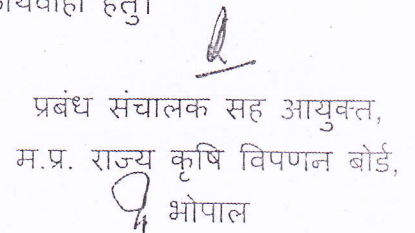 कार्यवाही हेतु।
प्रबंध संचालक सह आयुक्त,
म.प्र. राज्य कृषि विपणन बोर्ड,
भोपाल